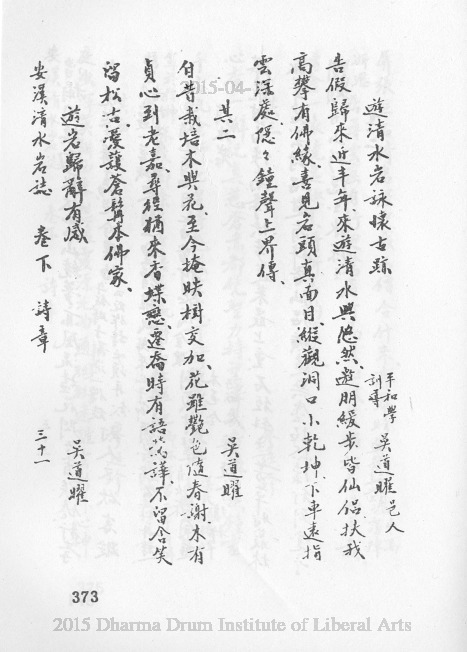 遊清水岩詠懷古跡
平和學
訓導
吳道曜 邑人
告假歸來近半年、來遊清水興悠然、遊朋緩步皆仙侶、扶我
高攀有佛緣、喜見岩頭真面目、縱觀洞口小乾坤、下車遠指
雲深處、隱々鐘聲上界傳、
其二
吳道曜
自昔栽培木與花、至今掩映樹交加、花雖艷色隨春謝、木有
貞心到老嘉、尋徑猶來香蝶戀、遷喬時有語鶯譁、不留含笑
留松古、濃護蒼髯本佛家、
遊岩歸辭有感
吳道曜
安溪清水岩誌 卷下 詩章
三十一
373
2015-04-
2015 Dharma Drum Institute of Liberal Arts